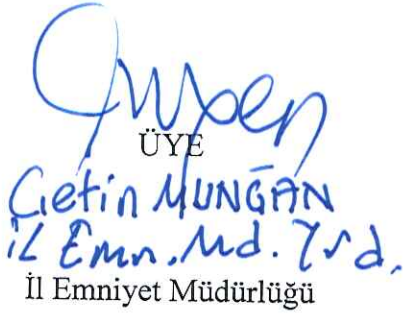 ÜYE
Çetin MUNGAN
İL Emn. Md. Yrd.
İl Emniyet Müdürlüğü